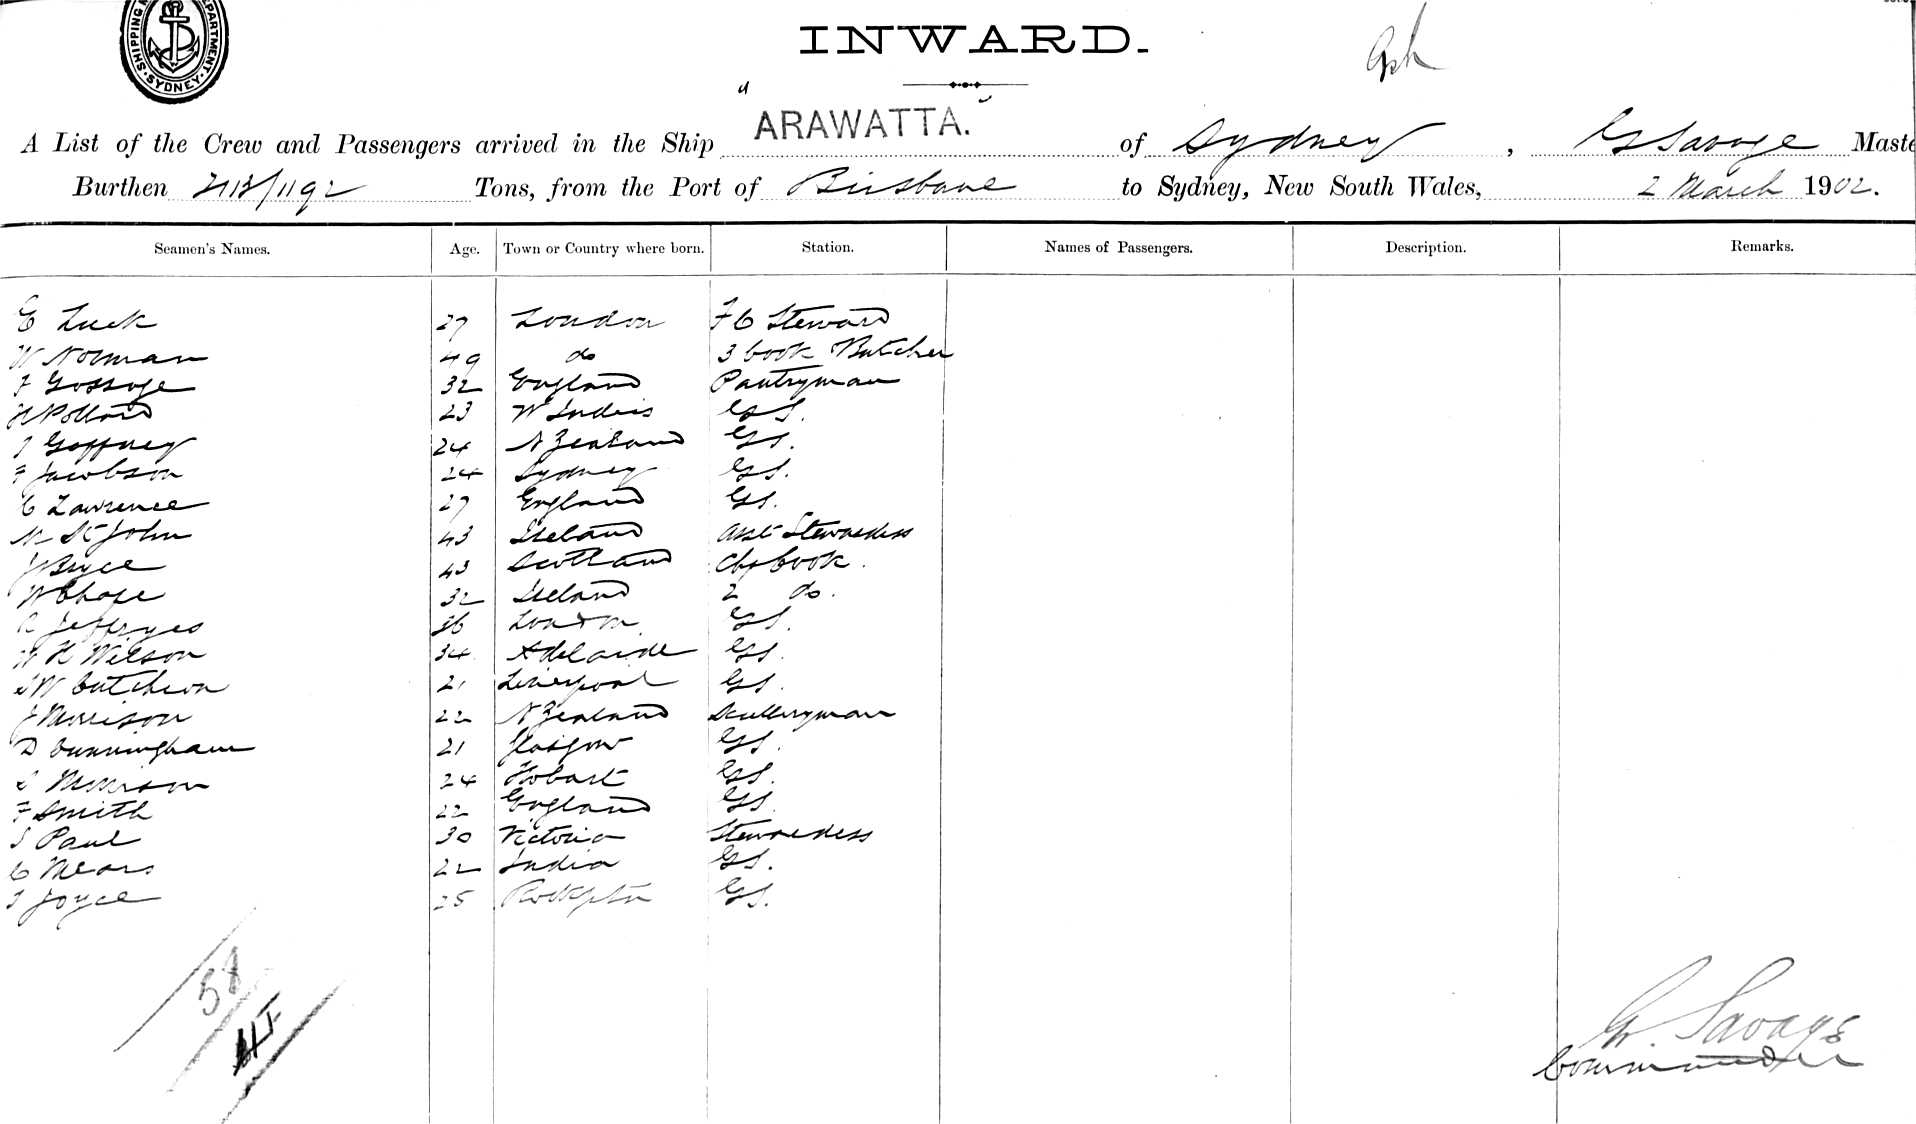 SHIPPING DEPARTMENT SYDNEY
INWARD.
A List of the Crew and Passengers arrived in the Ship "ARAWATTA." of Sydney, G Savage Maste
Burthen 2113/1192 Tons, from the Port of Brisbane to Sydney, New South Wales, 2 March 1902.
Seamen's Names. Age. Town or Country where born. Station. Names of Passengers. Description. Remarks.
E Luck 27 London F C Steward
W Norman 49 do 3 Cook Butcher
F Gossage 32 England Pantryman
H Pollard 23 W Indies GS.
J Gaffney 24 N Zealand GS.
F Jacobson 24 Sydney GS.
C Lawrence 27 England GS.
M St John 43 Ireland Asst Stewardess
J Bryce 43 Scotland Chf Cook.
W Chape 32 Ireland 2 do.
R Jeffryes 36 London GS.
W H Wilson 34 Adelaide GS.
J W Cutcheon 21 Liverpool GS.
J Morrison 22 N Zealand Sculleryman
D Cunningham 21 Glasgow GS.
S Morrison 24 Hobart GS.
F Smith 22 England GS.
S Paul 30 Victoria Stewardess
C Mears 22 India GS.
J Joyce 25 Rockpton GS.
58
G. Savage
Commander